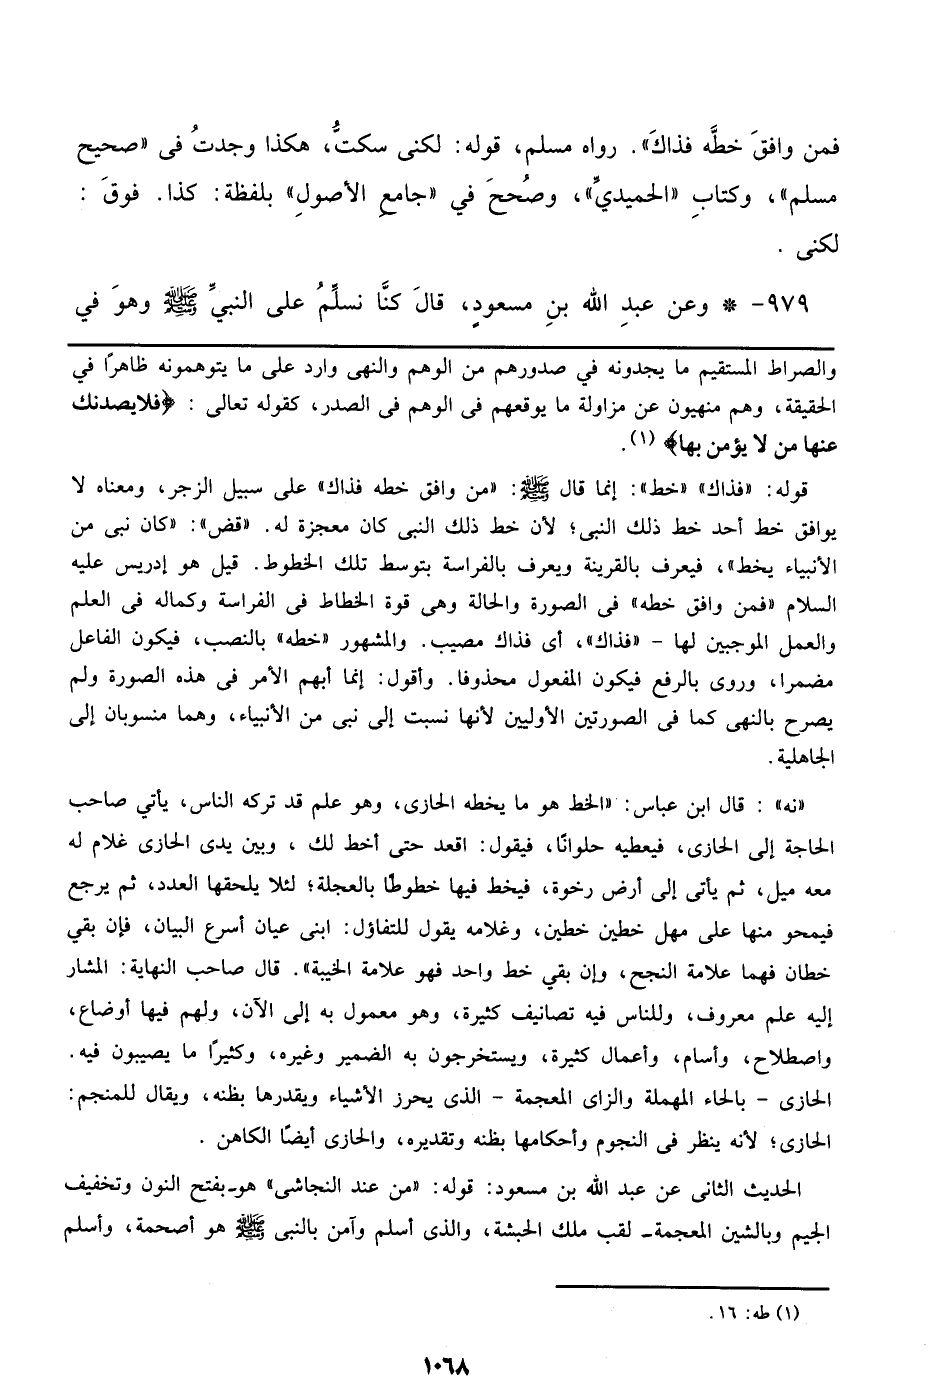 فمن وافقَ خطَّه فذاكَ». رواه مسلم، قوله: لكنى سكتُّ، هكذا وجدتُ فى «صحيح
مسلم»، وكتابِ «الحميديِّ»، وصُححَ في «جامعِ الأصولِ» بلفظة: كذا. فوقَ :
لكنى .
٩٧٩- * وعن عبدِ الله بنِ مسعودٍ، قالَ كنَّا نسلِّمُ على النبيِّ ﷺ وهوَ في
والصراط المستقيم ما يجدونه في صدورهم من الوهم والنهى وارد على ما يتوهمونه ظاهرًا في
الحقيقة، وهم منهيون عن مزاولة ما يوقعهم فى الوهم فى الصدر، كقوله تعالى : ﴿فلايصدنك
عنها من لا يؤمن بها﴾ (١).
قوله: «فذاك» «خط»: إنما قال ﷺ: «من وافق خطه فذاك» على سبيل الزجر، ومعناه لا
يوافق خط أحد خط ذلك النبى؛ لأن خط ذلك النبى كان معجزة له. «قض»: «كان نبى من
الأنبياء يخط»، فيعرف بالقرينة ويعرف بالفراسة بتوسط تلك الخطوط. قيل هو إدريس عليه
السلام «فمن وافق خطه» فى الصورة والحالة وهى قوة الخطاط فى الفراسة وكماله فى العلم
والعمل الموجبين لها - «فذاك»، أى فذاك مصيب. والمشهور «خطه» بالنصب، فيكون الفاعل
مضمرا، وروى بالرفع فيكون المفعول محذوفا. وأقول: إنما أبهم الأمر فى هذه الصورة ولم
يصرح بالنهى كما فى الصورتين الأوليين لأنها نسبت إلى نبى من الأنبياء، وهما منسوبان إلى
الجاهلية.
«نه» : قال ابن عباس: «الخط هو ما يخطه الحازى، وهو علم قد تركه الناس، يأتي صاحب
الحاجة إلى الحازى، فيعطيه حلوانًا، فيقول: اقعد حتى أخط لك ، وبين يدى الحازى غلام له
معه ميل، ثم يأتى إلى أرض رخوة، فيخط فيها خطوطًا بالعجلة؛ لئلا يلحقها العدد، ثم يرجع
فيمحو منها على مهل خطين خطين، وغلامه يقول للتفاؤل: ابنى عيان أسرع البيان، فإن بقي
خطان فهما علامة النجح، وإن بقي خط واحد فهو علامة الخيبة». قال صاحب النهاية: المشار
إليه علم معروف، وللناس فيه تصانيف كثيرة، وهو معمول به إلى الآن، ولهم فيها أوضاع،
واصطلاح، وأسام، وأعمال كثيرة، ويستخرجون به الضمير وغيره، وكثيرًا ما يصيبون فيه.
الحازى - بالحاء المهملة والزاى المعجمة - الذى يحرز الأشياء ويقدرها بظنه، ويقال للمنجم:
الحازى؛ لأنه ينظر فى النجوم وأحكامها بظنه وتقديره، والحازى أيضًا الكاهن .
الحديث الثانى عن عبد الله بن مسعود: قوله: «من عند النجاشى» هو-بفتح النون وتخفيف
الجيم وبالشين المعجمة- لقب ملك الحبشة، والذى أسلم وآمن بالنبى ﷺ هو أصحمة، وأسلم
(١) طه: ١٦.
١٠٦٨